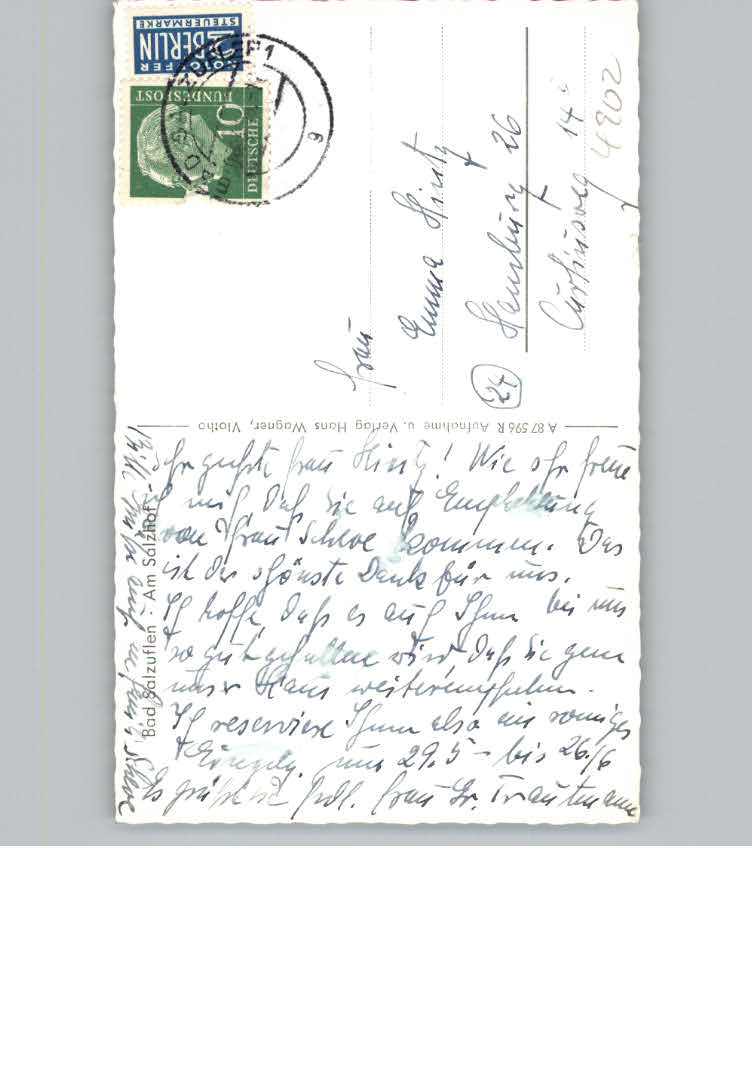 NOTOPFER
2 BERLIN
STEUERMARKE
DEUTSCHE
BUNDESPOST
10
Frau
Emma Hintz
(24) Hamburg 26
Curtiusweg 14 c
4902
A 87 596 R Aufnahme u. Verlag Hans Wagner, Vlotho
Bad Salzuflen : Am Salzhof
Sehr geehrte Frau Hintz! Wie sehr freue
ich mich, daß Sie auf Empfehlung
von Frau Scheve kommen. Das
ist der schönste Dank für uns.
Ich hoffe, daß es auch Ihnen bei uns
so gut gefallen wird, daß Sie gern
unser Haus weiterempfehlen.
Ich reserviere Ihnen also ein sonniges
29.5 – bis 26./6
Es grüßt Sie frdl. Frau Dr. Trautmann
Bitte Grüße auch an Frau Scheve